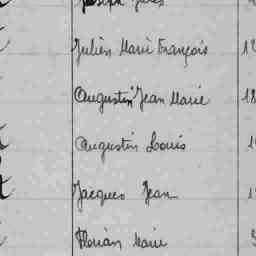 Joseph Jules
Julien Marie François 12
Augustin Jean Marie 18
Augustin Louis 1
Jacques Jean 1
Florian Marie